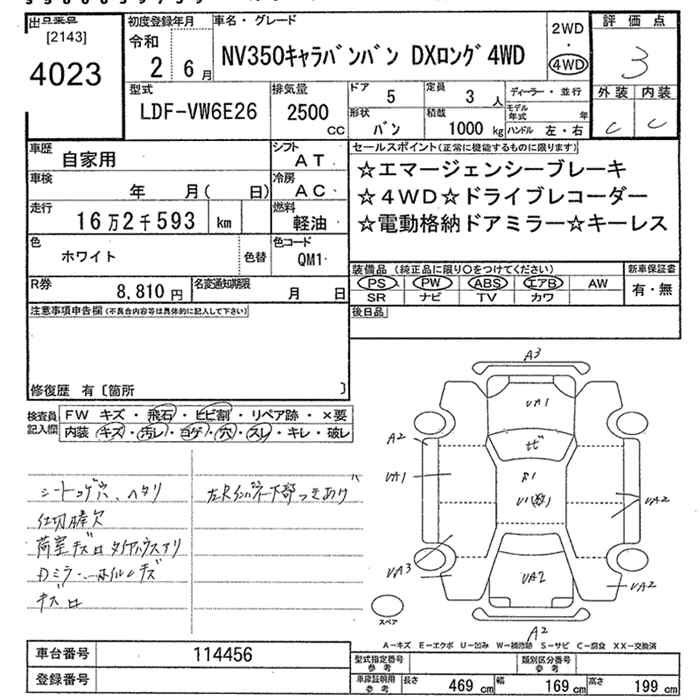 出品番号
[2143]
4023
初度登録年月
令和
2 6月
車名・グレード
NV350キャラバンバン DXロング 4WD
2WD
・
4WD
評価点
3
外装 内装
C C
型式
LDF-VW6E26
排気量
2500
CC
ドア 5
定員 3 人
形状 バン
積載 1000 kg
ディーラー・並行
モデル年式 年
ハンドル 左・右
車歴 自家用
シフト AT
車検 年 月( 日)
冷房 AC
走行 16万2千593 km
燃料 軽油
色 ホワイト
色替
色コード QM1
R券 8,810円
名変通知期限 月 日
セールスポイント(正常に機能するものに限ります)
☆エマージェンシーブレーキ
☆4WD☆ドライブレコーダー
☆電動格納ドアミラー☆キーレス
装備品 (純正品に限り○をつけてください)
PS PW ABS エアB AW
SR ナビ TV カワ
新車保証書
有・無
後日品
注意事項申告欄(不具合内容等は具体的に記入して下さい)
修復歴 有〔箇所 〕
検査員記入欄
FW キズ・飛石・ヒビ割・リペア跡・×要
内装・キズ・汚レ・コゲ・穴・スレ・キレ・破レ
シートコゲ穴、ヘタリ
荷室キズ
キズ
A3
UA1
A2
UA1
UA2
UA3
UA2
UA2
A2
スペア
A-キズ E-エクボ U-凹み W-補修跡 S-サビ C-腐食 XX-交換済
車台番号 114456
登録番号
型式指定番号 参考
類別区分番号 参考
車庫証明用 参考
長さ 469 cm 幅 169 cm 高さ 199 cm